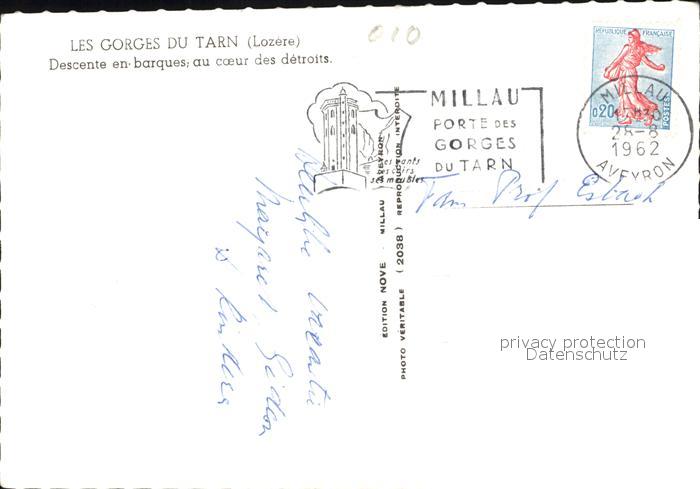 LES GORGES DU TARN (Lozère)
Descente en barques; au cœur des détroits.
010
RÉPUBLIQUE FRANÇAISE
0,20
POSTES
MILLAU
28-8
1962
AVEYRON
MILLAU
PORTE DES
GORGES
DU TARN
ses gants
ses cuirs
ses meubles
Fam Prof Esbach
EDITION NOVE - MILLAU AVEYRON
PHOTO VÉRITABLE (2038) REPRODUCTION INTERDITE
Margaret
privacy protection
Datenschutz